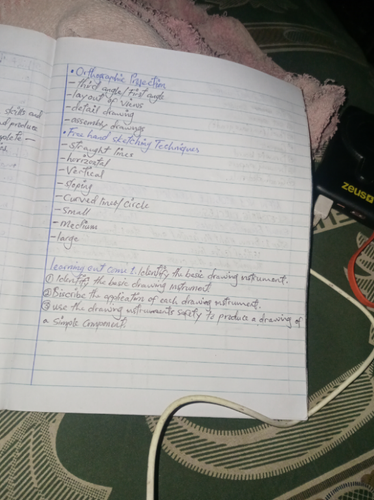 skits and
d produce
plete –
• Orthographic Projection
– third angle/first angle
– layout of views
– detail drawing
– assembly drawings
• Free hand sketching Techniques
– straight lines
– horizontal
– Vertical
– sloping
– Curved lines/circle
– Small
– medium
– large
learning out come 1: Identify the basic drawing instrument.
① Identify the basic drawing instrument
② Discribe the application of each drawing instrument.
③ use the drawing instruments safety to produce a drawing of
a Simple Component.
zeus